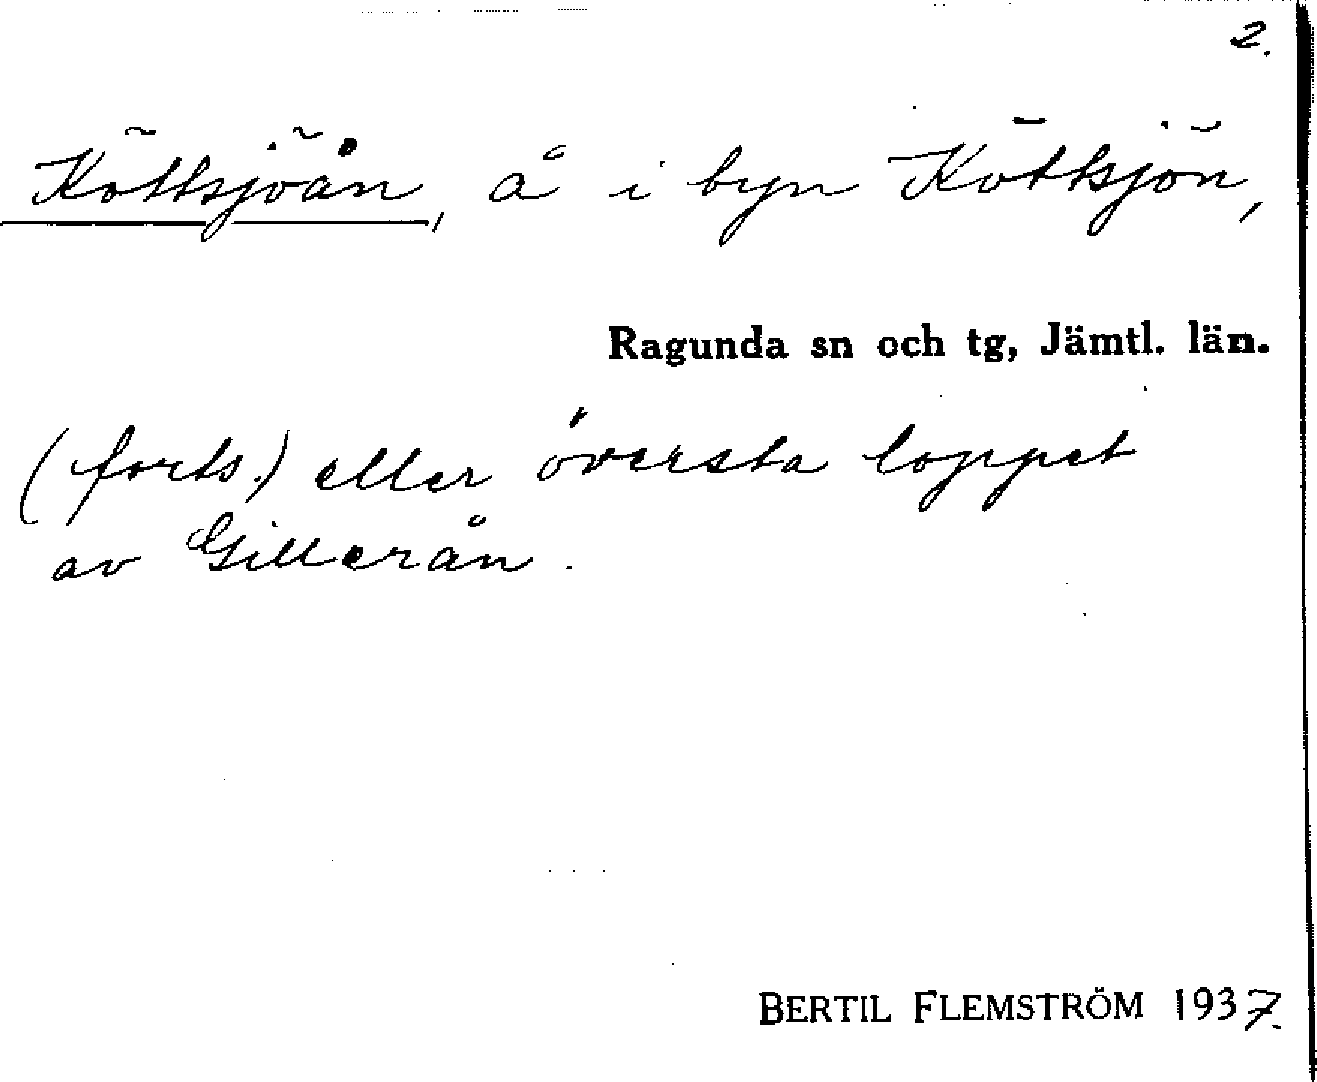 2.
Köttsjöån, å i byn Köttsjön,
Ragunda sn och tg, Jämtl. län.
(forts.) eller översta loppet
av Gillerån.
BERTIL FLEMSTRÖM 1937.